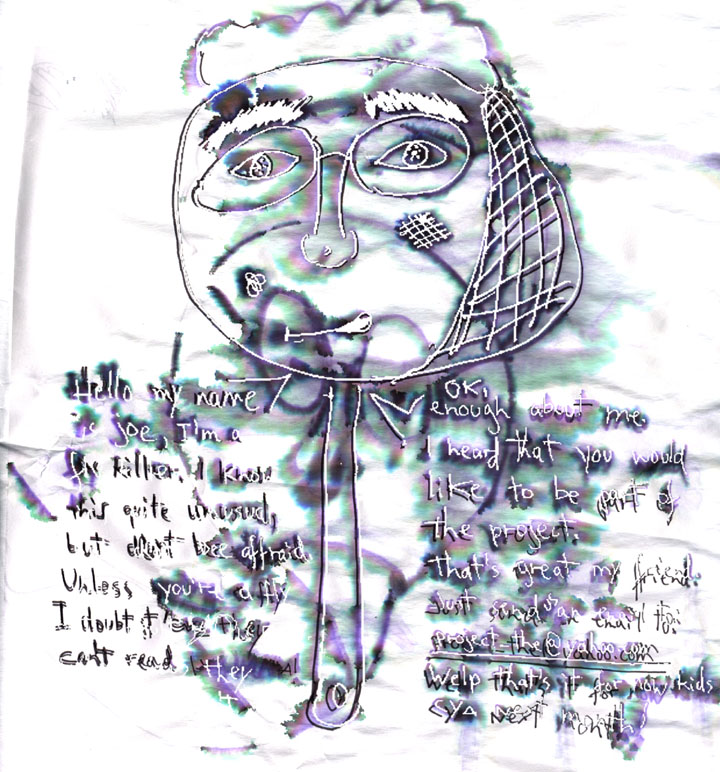 Hello my name
is joe, I'm a
fly killer. I know
this quite unusual,
but don't bee affraid.
Unless you're a fly
I doubt it
can't read, they
OK,
enough about me.
I heard that you would
like to be part of
the project.
that's great my friend.
Just send an email to:
project_the@yahoo.com
Welp that's it for now kids
cya next month!